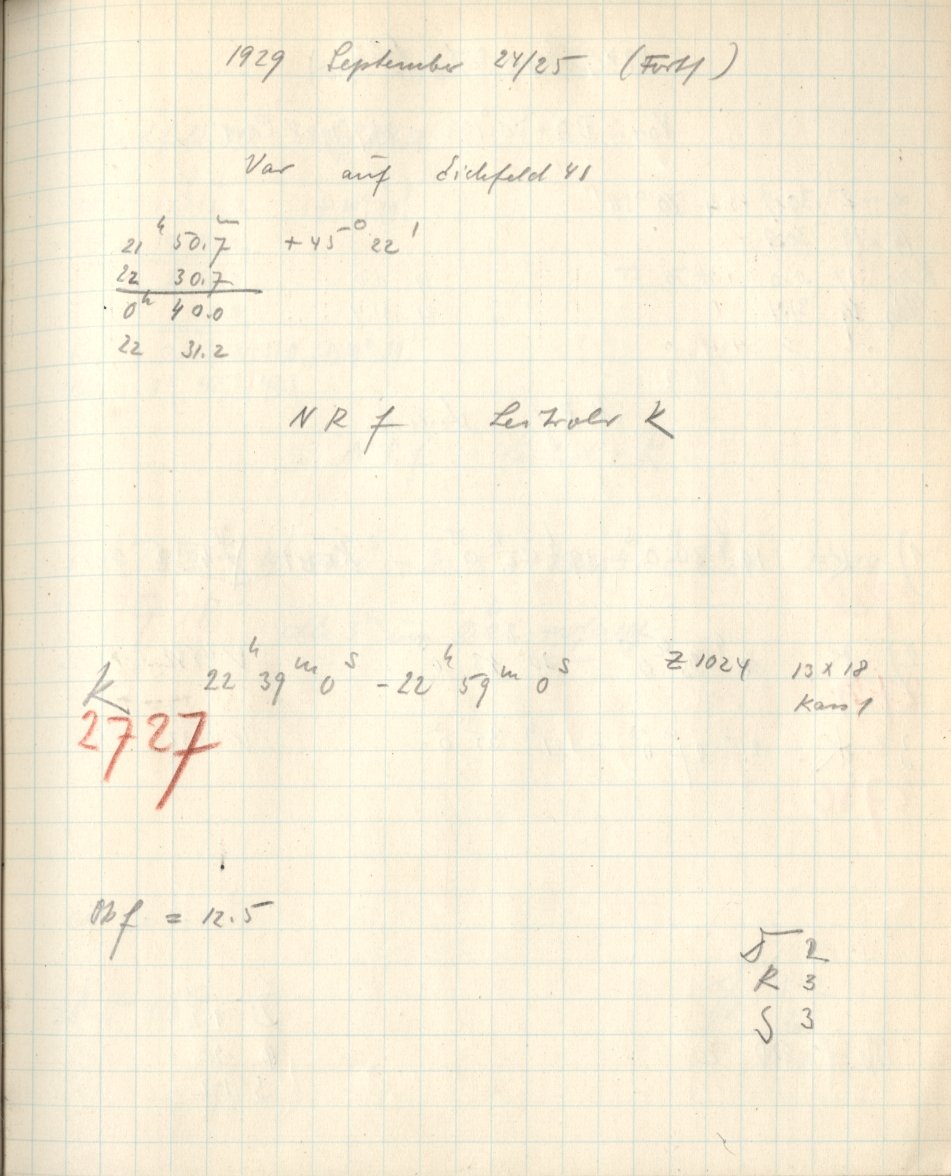 1929 September 24/25 (Forts)
Var auf Eichfeld 48
21ʰ 50.7ᵐ +45° 22'
22 30.7
0ʰ 40.0
22 31.2
N R f Leitrohr K
K 22ʰ 39ᵐ 0ˢ - 22ʰ 59ᵐ 0ˢ Z 1024 13 x 18
Kass 1
2727
Obf = 12.5
L 2
R 3
S 3